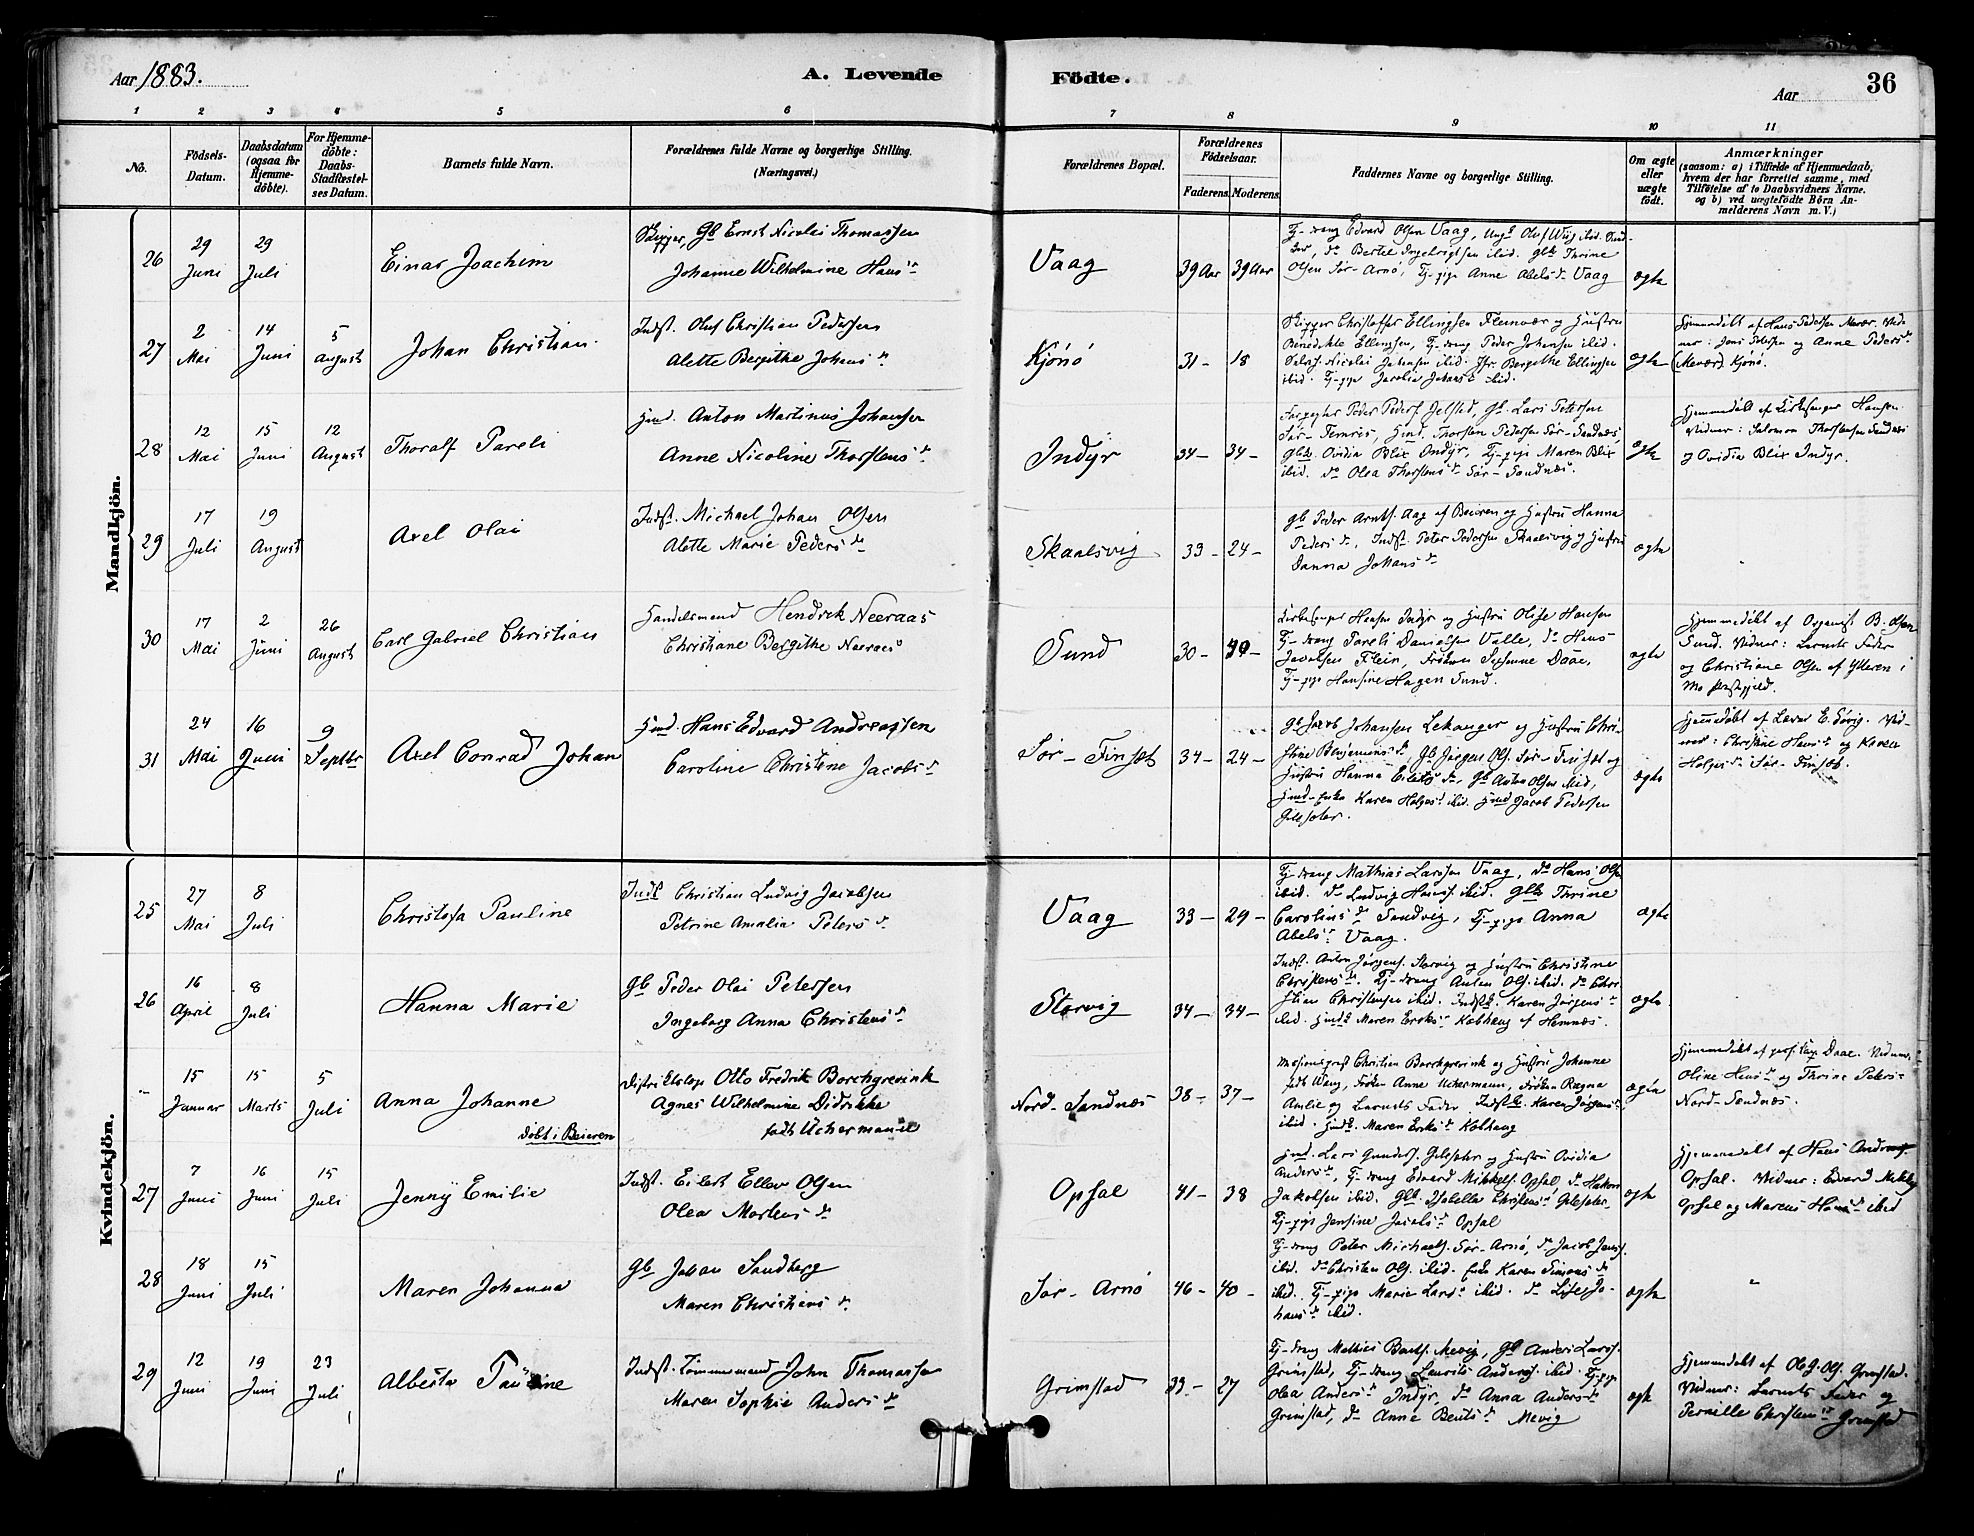 Aar 1883.
A. Levende
Födte.
Aar
36
1 2 3 4 5 6 7 8 9 10 11
No.
Födsels-Datum.
Daabsdatum (ogsaa for Hjemmedöbte).
For Hjemmedöbte: Daabs-Stadfæstelses Datum.
Barnets fulde Navn.
Forældrenes fulde Navne og borgerlige Stilling. (Næringsvei.)
Forældrenes Bopæl.
Forældrenes Födselsaar.
Faderens. Moderens.
Faddernes Navne og borgerlige Stilling.
Om ægte eller uægte födt.
Anmærkninger
(saasom: a) i Tilfælde af Hjemmedaab,
hvem der har forrettet samme, med
Tilföielse af to Daabsvidners Navne.
og b) ved uægtefödte Börn Anmelderens Navn m. V.)
Mandkjön.
26 29 Juni 29 Juli Einar Joachim
Skipper, Gb Ernst Nicolai Thomassen
Johanne Wilhelmine Hans d.
Vaag 39 Aar 39 Aar
Tj-dreng Edvard Olsen Vaag,
Olsen Sør-Arnø, Tj-pige Anne Abels d. Vaag
ægte
27 2 Mai 14 Juni 5 August Johan Christian
Indst. Oluf Christian Pedersen
Alette Bergithe Johans d.
Kjønø 31 - 18
Skipper Christoffer Ellingsen Fleinvær og Hustru
Benedikte Ellingsen, Tj-dreng Peder Johansen ibid.
ibid. Tj-pige Jacobia Johans d. ibid.
ægte
Hjemmedøbt af Hans Pedersen Mevær. Vidner: og Anne Peders d.
(Mevær) Kjønø.
28 12 Mai 15 Juni 12 August Thoralf Pareli
Hmd. Anton Martinus Johansen
Anne Nicoline Thorstens d.
Indyr 34 - 34 -
Hmd. Thorsten Pedersen Sør-Sandnæs,
Ovidia Blix Indyr, Tj-pige Maren Blix
ibid. do Olea Thorstens d. Sør-Sandnæs.
ægte
Hjemmedøbt af Kirkesanger Hansen
Vidner: Salomon Thorstensen Sandnæs
og Ovidia Blix Indyr.
29 17 Juli 19 August Axel Olai
Indst. Michael Johan Olsen
Alette Marie Peders d.
Skaalsvig 33 - 24 -
Gb Peder Arntz. Aag af Beieren og Hustru Hanna
Peders d., Indst. Peter Pedersen Skaalsvig og Hustru
Danna Johans d.
ægte
30 17 Mai 2 Juni 26 August Carl Gabriel Christian
Handelsmand Hendrik Neeraas
Christiane Bergithe Neeraas
Sund 30 -
Kirkesanger Hansen Indyr og Hustru Hansen
Tj-dreng Pareli Danielsen Valle, do Hans
Jacobsen Flein, Frøken Susanne Daae,
Tj-pige Hansine Hagen Sund.
ægte
Hjemmedøbt af Organist B. Olsen
Sund. Vidner: Barnets Fader
og Christiane Olsen af Ytteren i
Mo Præstegjeld.
31 24 Mai 16 Juni 9 Septbr Axel Conrad Johan
Hmd. Hans Edvard Andreassen
Caroline Christine Jacobs d.
Sør-Finset 34 - 24 -
Gb Jacob Johansen Lekanger og Hustru Christine Benjamins d., Gb Jørgen Ols. Sør-Finset og
Hustru Hanna Eilerts d., Gb Anton Olsen ibid,
Hmd-Enke Karen Helges d. ibid. Hmd Jacob Pedersen
Gilesæter.
ægte
Hjemmedøbt af Lærer E. Søvig. Vidner: Christine Hans d. og Karen
Helges d. Sør-Finset.
Kvindekjön.
25 27 Mai 8 Juli Christofa Pauline
Indst Christian Ludvig Jacobsen
Petrine Amalia Peters d.
Vaag 33 - 29 -
Tj-dreng Mathias Larsen Vaag, do Hans Olsen
ibid. do Ludvig Hans. ibid. Thrine
Carolius d. Sandvig, Tj-pige Anna
Abels d. Vaag.
ægte
26 16 April 8 Juli Hanna Marie
Gb Peder Olai Petersen
Ingeborg Anna Christens d.
Storvig 34 - 34 -
Indst. Anton Jørgens. Storvig og Hustru Christine
Christens d. Tj-dreng Anton Ols. ibid. do Christian Christensen ibid. Karen Jørgens d.
ibid. Maren Eriks d. Kobhaug af Hemnæs.
ægte
" 15 Januar 15 Marts 5 Juli Anna Johanne
døbt i Beieren
Distriktslæge Otto Fredrik Borchgrevink
Agnes Wilhelmine Didrikke
født Uchermann
Nord-Sandnæs 38 - 37 -
Christian Borchgrevink og Hustru Johanne
født Wang, Frøken Anne Uchermann, Frøken Ragna
og Barnets Fader Karen Jørgens d.
ibid. Maren Eriks d. Kobhaug
ægte
Hjemmedøbt af Daae. Vidner:
Oline Hans d. og Thrine Peters d.
Nord-Sandnæs.
27 7 Juni 16 Juni 15 Juli Jenny Emilie
Indst. Eilert Elias Olsen
Olea Mortens d.
Opsal 41 - 38
Hmd. Lars Gunders. Gilesæter og Hustru Ovidia
Anders d., Tj-dreng Edvard Mikkels. Opsal, do Hakon
Jakobsen ibid. Isabella Christens d. Gilesæter.
Tj-pige Jensine Jacobs d. Opsal
ægte
Hjemmedøbt af Hans Anders.
Opsal. Vidner: Edvard Mikkels.
Opsal og Marcus ibid
28 18 Juni 15 Juli Maren Johanna
Gb Johan Sandberg
Maren Christiens d.
Sør-Arnø 46 - 40 -
Tj-dreng Peter Michaels. Sør-Arnø, do Jacob Jens.
ibid. do Christen Ols. ibid. Enke Karen Simons d.
ibid. Tj-pige Marie Lars d. ibid. do Johans d. ibid.
ægte
"
29 12 Juni 19 Juni 23 Juli Alberta Pauline
Indst. Tømmermand John Thomassen
Maren Sophie Anders d.
Grimstad 33 - 27
Tj-dreng Mathias Bents. Mevig, Gb Anders Lars.
Grimstad, Tj-dreng Laurits Anders. ibid. Tj-pige
Olea Anders d. Indyr, do Anna Anders d.
Grimstad, do Anne Bents d. Mevig
ægte
Hjemmedøbt af Ols. Grimstad.
Vidner: Barnets Fader og
Pernille Christens d. Grimstad